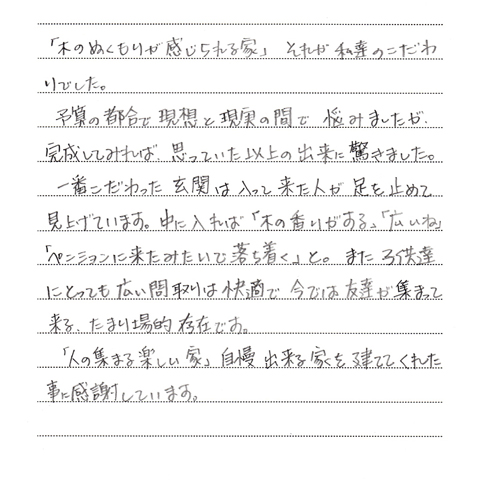 「木のぬくもりが感じられる家」 それが私達のこだわ
りでした。
予算の都合で現想と現実の間で 悩みましたが、
完成してみれば、思っていた以上の出来に驚きました。
一番こだわった玄関は入って来た人が足を止めて
見上げています。中に入れば「木の香りがする」「広いね」
「ペンションに来たみたいで落ち着く」と。また子供達
にとっても広い間取りは快適で今では友達が集まって
来る、たまり場的存在です。
「人の集まる楽しい家」自慢出来る家を建ててくれた
事に感謝しています。